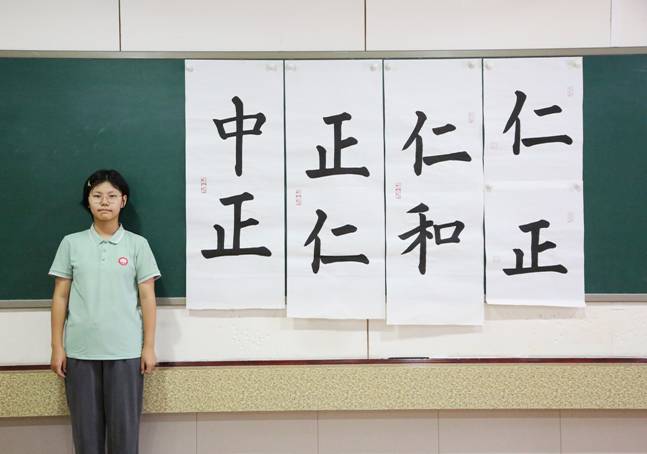 中正
正仁
仁和
仁
正